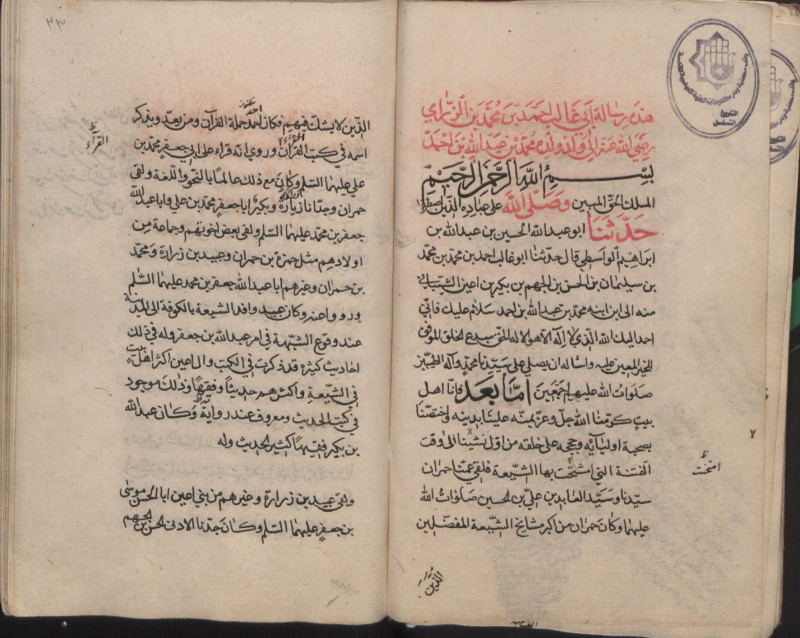 هذه رسالة أبي غالب احمد بن محمد بن الزراري
رضي الله عنه الى ولد ولده محمد بن عبد الله بن احمد
بسم الله الرحمن الرحيم
الملك الحق المبين وصلى الله على عباده الذين اصطفى
حدثنا ابو عبد الله الحسين بن عبد الله بن
ابراهيم الواسطي قال حدثنا ابو غالب احمد بن محمد بن محمد
بن سليمان بن الحسن بن الجهم بن بكير بن اعين الشيباني
منه الى ابن ابنه محمد بن عبد الله بن احمد سلام عليك فاني
احمد اليك الله الذي لا اله الا هو الاله المبدع لخلق الموفق
للخير المعين عليه واساله ان يصلي على سيدنا محمد وآله الطيبين
صلوات الله عليهم اجمعين اما بعد فانا اهل
بيت كرمنا الله جل وعز بمنه علينا بدينه واختصنا
بصحبة اوليائه وحججه على خلقه من اول نشئنا الى وقت
الفتنة التي امتحنت بها الشيعة فلقي عمنا حمران
سيدنا وسيد العابدين علي بن الحسين صلوات الله
عليهما وكان حمران من اكبر مشايخ الشيعة المفضلين
الذين
امتحنت
٧
٣٣
الذين لا يشك فيهم فكان احد حملة القرآن ومن بعد ويذكر
اسمه في كتب القرآن وروي انه قراء على ابي جعفر محمد بن
القرآء
علي عليهما السلم وكان مع ذلك عالما بالنحو واللغة ولقي
حمران وجدانا زرارة وبكير ابا جعفر محمد بن علي وابا عبد الله
جعفر بن محمد عليهما السلم ولقي بعض اخوتهم وجماعة من
اولادهم مثل حمزة بن حمران وعبيد بن زرارة ومحمد
بن حمران وغيرهم ابا عبد الله جعفر بن محمد عليهما السلم
ورووا عنه وكان عبيد وافد الشيعة بالكوفة الى المدينة
عند وقوع الشبهة في امر عبد الله بن جعفر وله في ذلك
احاديث كثيرة قد ذكرت في الكتب وال اعين اكثر اهل بيت
في الشيعة واكثرهم حديثا وفقها وذلك موجود
في كتب الحديث ومعروف عند رواية وكان عبد الله
بن بكير فقيها كثير الحديث وله
ولقي عبيد بن زرارة وغيرهم من بني اعين ابا الحسن موسى
بن جعفر عليهما السلم وكان جدنا الادنى الحسن بن الجهم